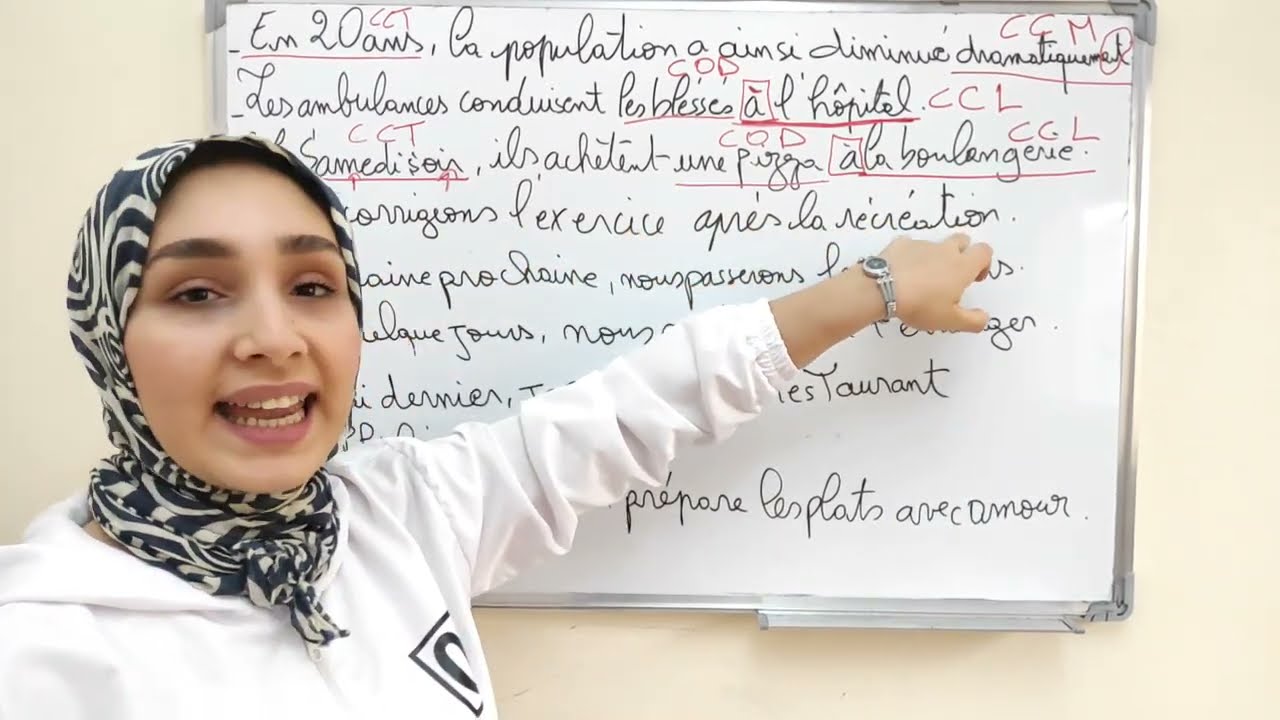 CCT CCM
- En 20 ans, la population a ainsi diminué dramatiquement
COD
- Les ambulances conduisent les blessés à l'hôpital. CCL
CCT COD CCL
Samedi soir, ils achètent une pizza à la boulangerie.
corrigeons l'exercice après la récréation.
prochaine, nous passerons
jours, nous
dernier, restaurant
prépare les plats avec amour.